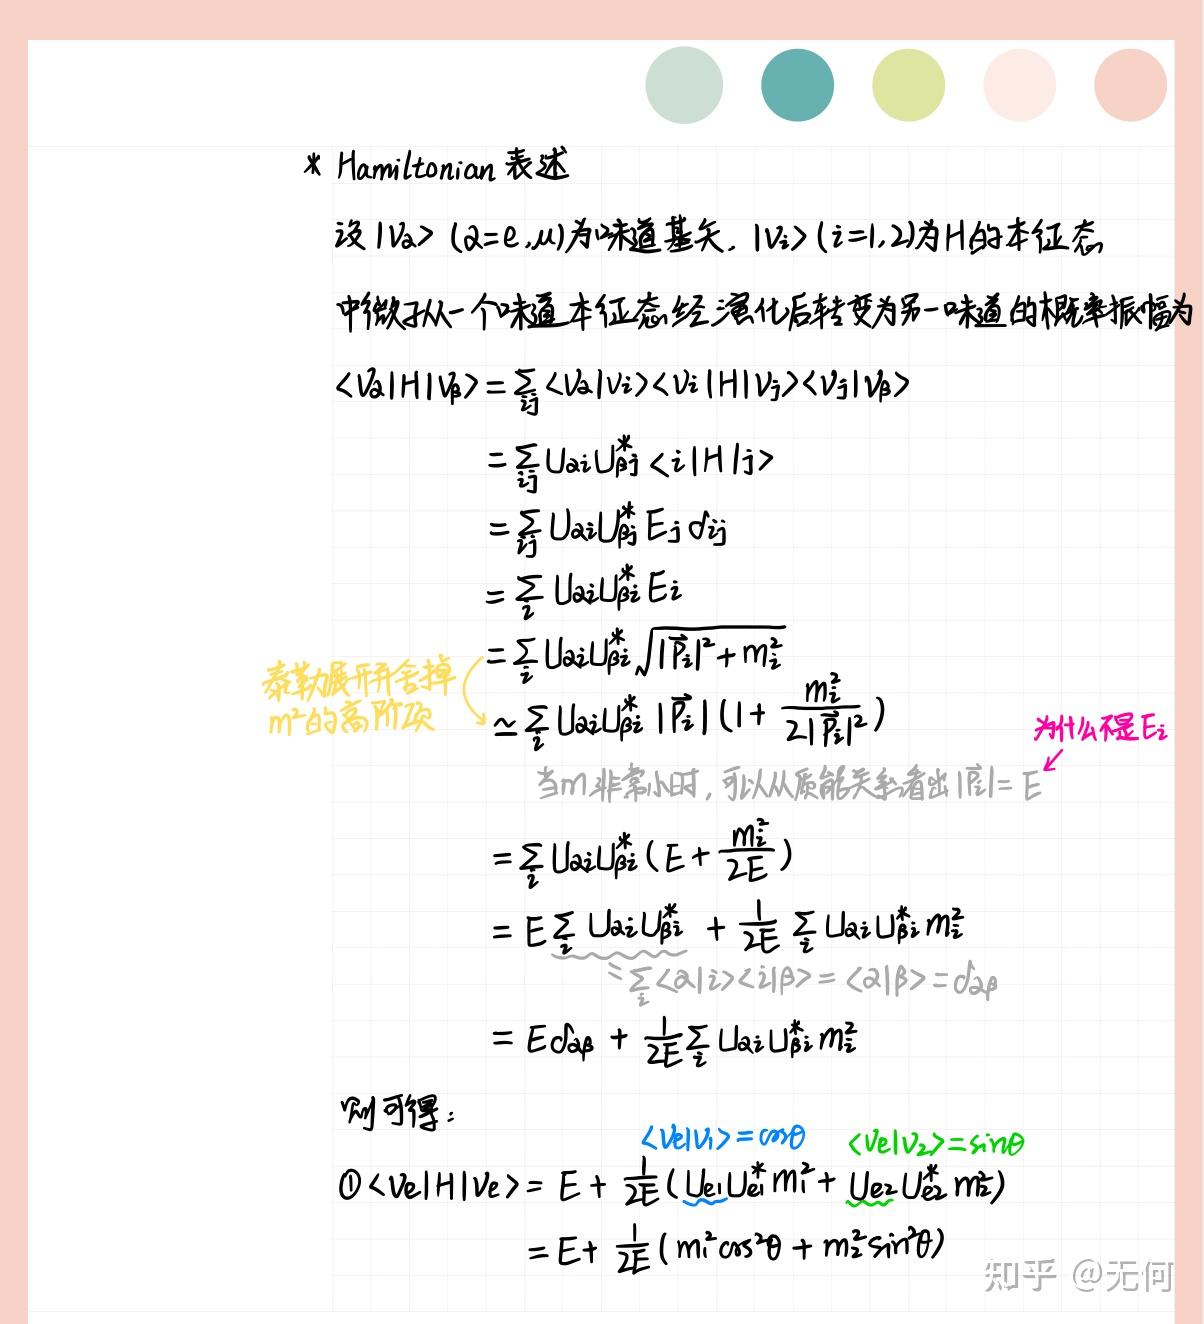 * Hamiltonian 表述
设 |να> (α=e,μ)为味道基矢, |νi> (i=1,2)为H的本征态
中微子从一个味道本征态经演化后转变为另一味道的概率振幅为
<να|H|νβ> = Σij <να|νi><νi|H|νj><νj|νβ>
= Σij Uαi U*βj <i|H|j>
= Σij Uαi U*βj Ej δij
= Σi Uαi U*βi Ei
= Σi Uαi U*βi √(|P⃗i|² + mi²)
泰勒展开并舍掉
m²的高阶项
≃ Σi Uαi U*βi |P⃗i| (1 + mi²/2|P⃗i|²)
为什么不是Ei
当m非常小时, 可以从质能关系看出 |P⃗i| = E
= Σi Uαi U*βi (E + mi²/2E)
= E Σi Uαi U*βi + 1/2E Σi Uαi U*βi mi²
= Σi <α|i><i|β> = <α|β> = δαβ
= Eδαβ + 1/2E Σi Uαi U*βi mi²
则可得:
<νe|ν1> = cosθ <νe|ν2> = sinθ
① <νe|H|νe> = E + 1/2E (Ue1 U*e1 m1² + Ue2 U*e2 m2²)
= E + 1/2E (m1² cos²θ + m2² sin²θ)
知乎 @无何